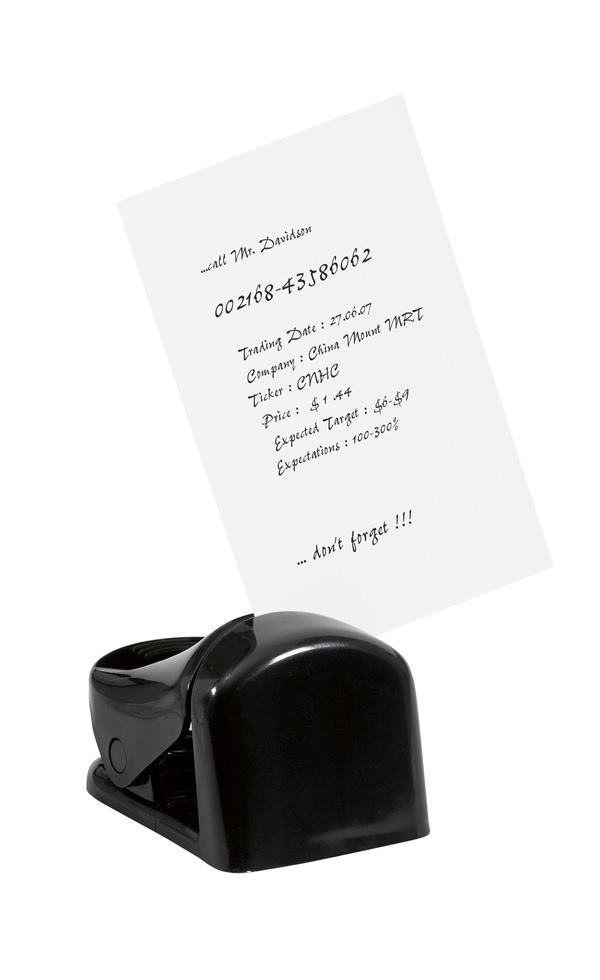 ...call Mr. Davidson
002168-43586062
Trading Date : 27.06.07
Company : China Mount MRT
Ticker : CNHC
Price : $ 1 .44
Expected Target : $6-$9
Expectations : 100-300%
... don't forget !!!